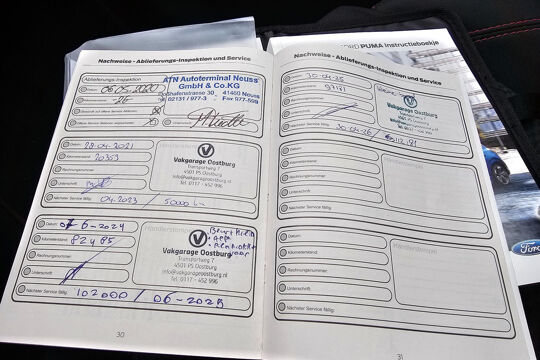 Nachweise - Ablieferungs-Inspektion und Service
Ablieferungs-Inspektion
Datum: 06.05.2020
Kilometerstand: 26
ATN Autoterminal Neuss
GmbH & Co.KG
41460 Neuss
Tel 02131 / 977-3 Fax 977-599
Unterschrift
Datum: 28.04.2021
Kilometerstand: 20353
Rechnungsnummer:
Unterschrift:
Nächster Service fällig: 04.2023 / 50000
Vakgarage Oostburg
Transportweg 7
4501 PS Oostburg
info@vakgarageoostburg.nl
Tel. 0117 - 452 996
Datum: 07-6-2024
Kilometerstand: 82485
Rechnungsnummer:
Unterschrift:
Nächster Service fällig: 102000 / 06-2025
Händlerstempel
Vakgarage Oostburg
Transportweg 7
4501 PS Oostburg
info@vakgarageoostburg.nl
Tel. 0117 - 452 996
30
Nachweise - Ablieferungs-Inspektion und Service
Datum: 30-04-25
Kilometerstand: 97181
Rechnungsnummer:
Unterschrift:
Nächster Service fällig: 30-04-26 / 112.181
Vakgarage Oostburg
Datum:
Kilometerstand:
Rechnungsnummer:
Unterschrift:
Nächster Service fällig:
Händlerstempel
Datum:
Kilometerstand:
Rechnungsnummer:
Unterschrift:
Nächster Service fällig:
Händlerstempel
31
FORD PUMA Instructieboekje
Ford